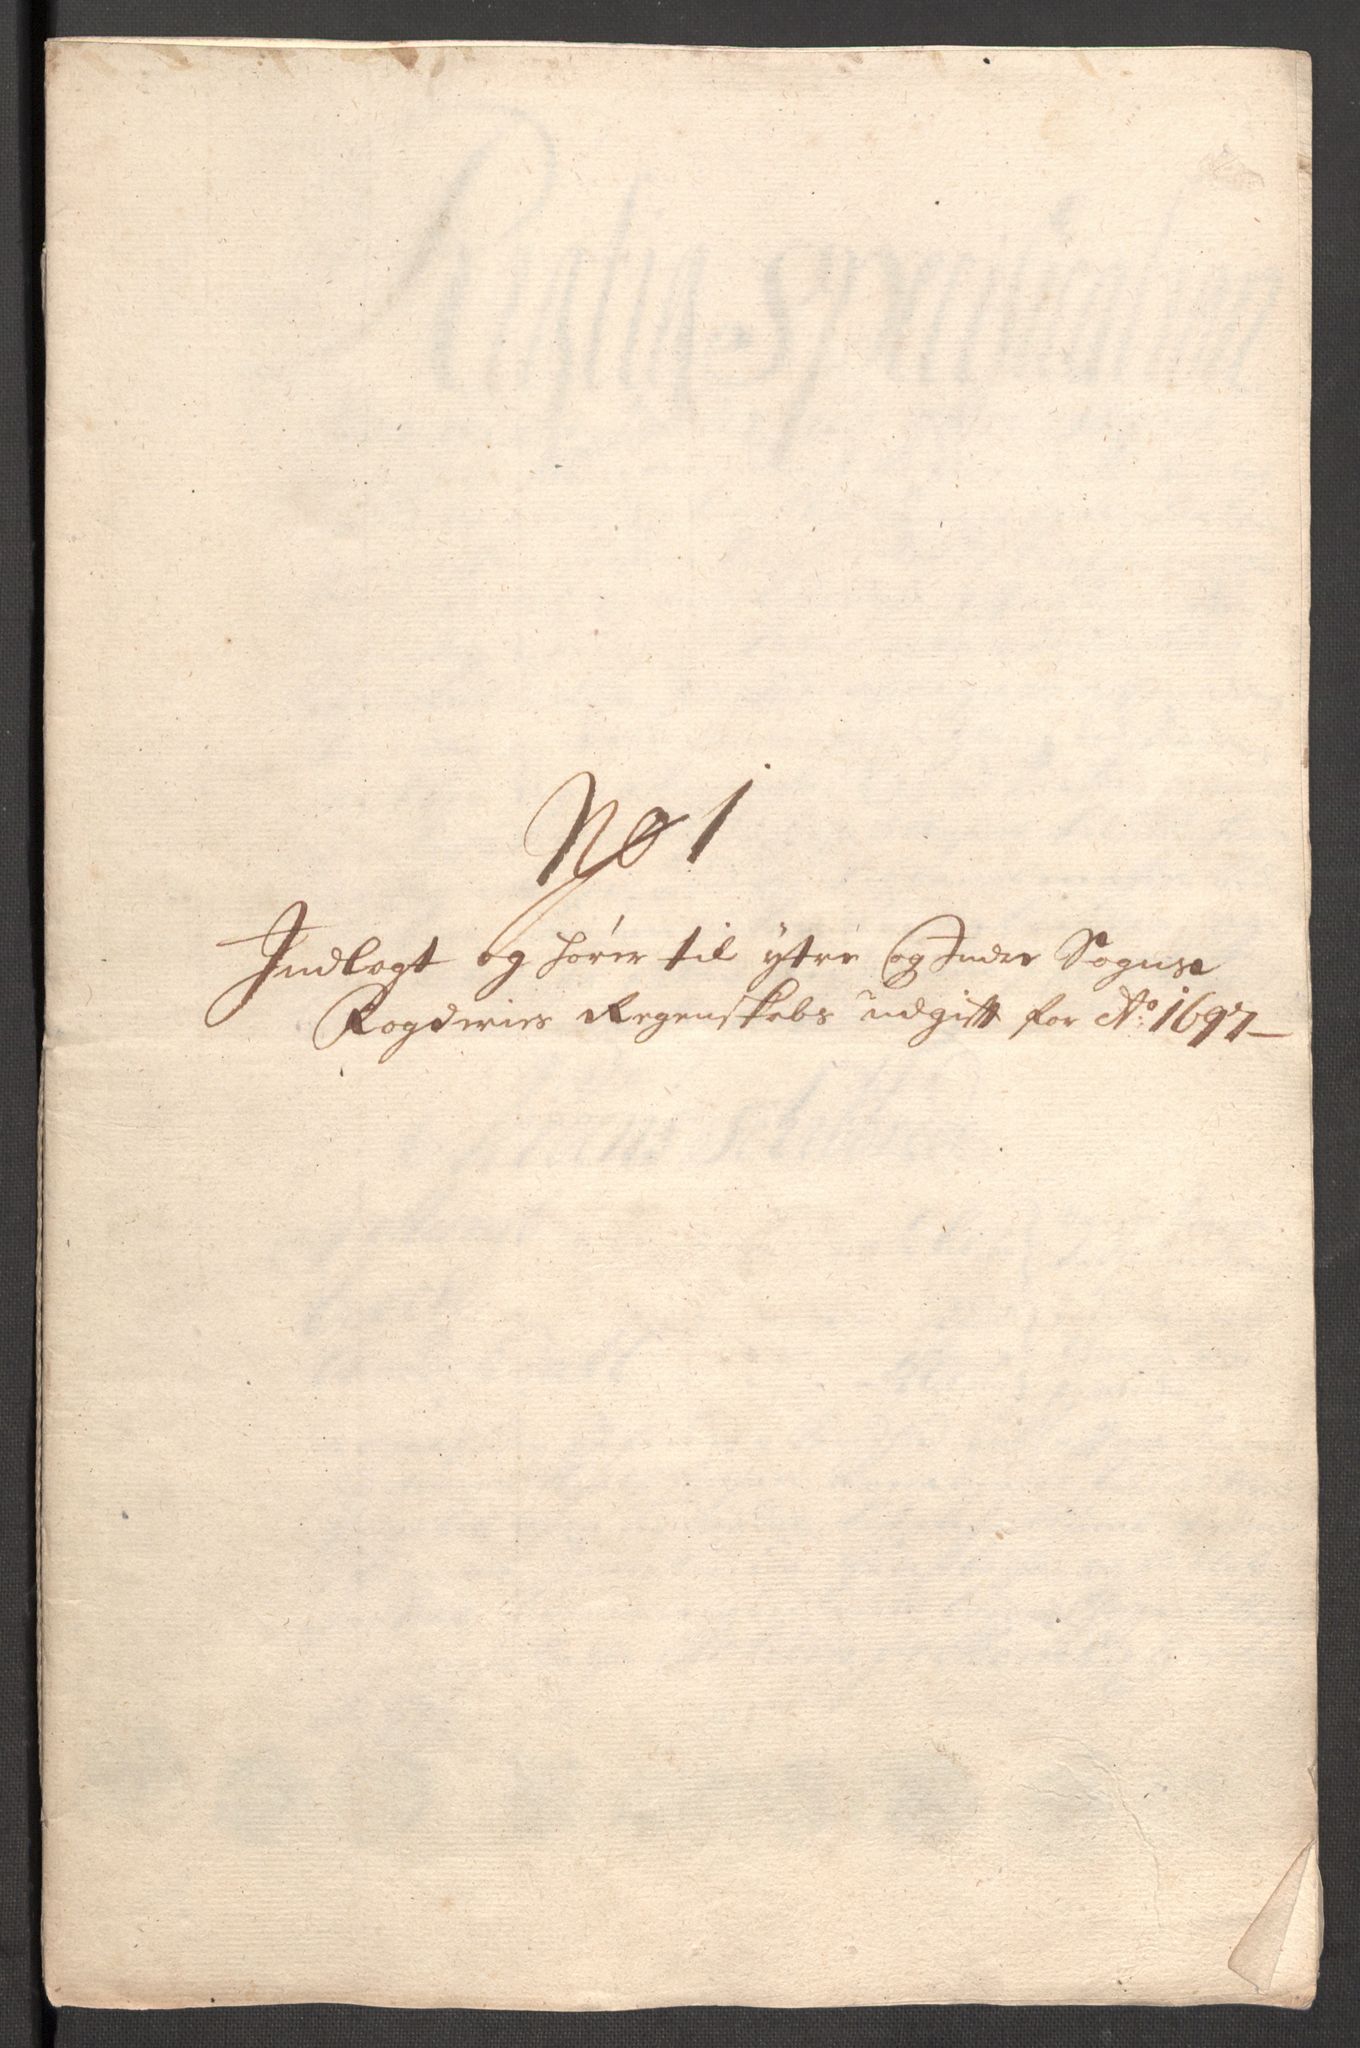 No 1
Indlagt og hörer til ytre og Indre Sogns
Fogderies Regenskebs udgifft for Ao: 1697